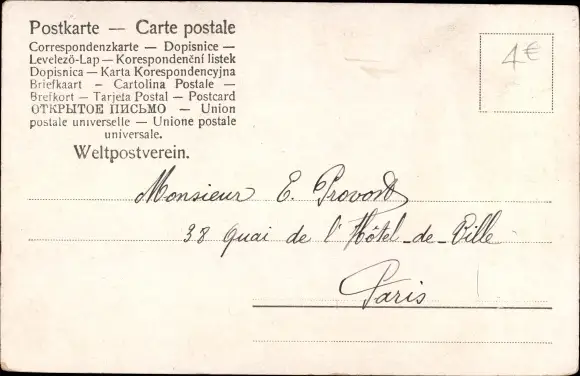 Postkarte — Carte postale
Correspondenzkarte — Dopisnice —
Levelező-Lap — Korespondenční lístek
Dopisnica — Karta Korespondencyjna
Briefkaart — Cartolina Postale —
Brefkort — Tarjeta Postal — Postcard
ОТКРЫТОЕ ПИСЬМО — Union
postale universelle — Unione postale
universale.
Weltpostverein.
4€
Monsieur E. Provost
38 Quai de l'Hôtel-de-Ville
Paris